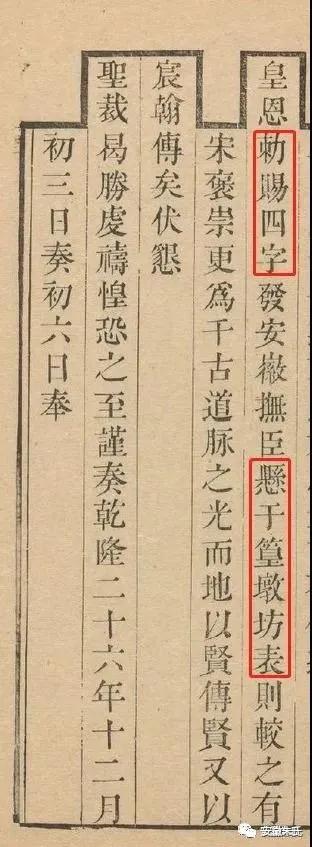 皇恩勅賜四字發安徽撫臣懸于篁墩坊表則較之有
宋褒崇更爲千古道脉之光而地以賢傳賢又以
宸翰傳矣伏懇
聖裁曷勝虔禱惶恐之至謹奏乾隆二十六年十二月
初三日奏初六日奉
安徽朱氏